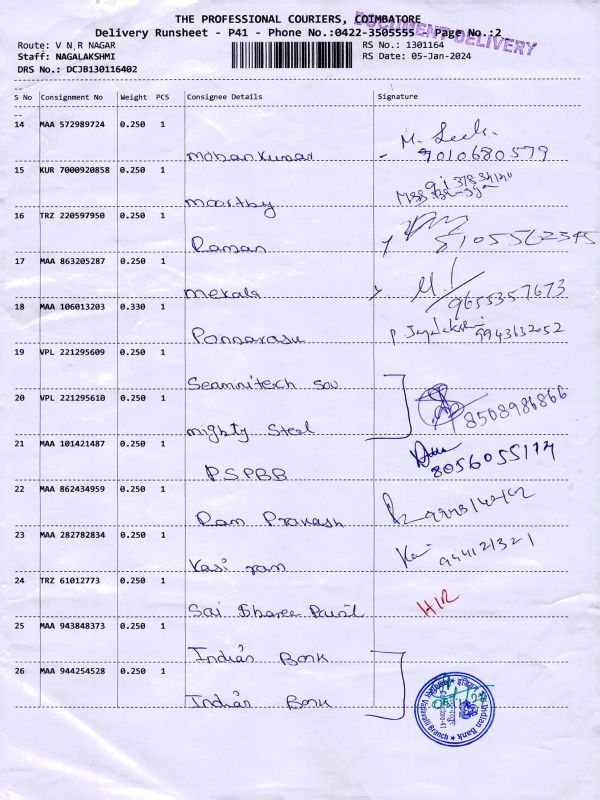 THE PROFESSIONAL COURIERS, COIMBATORE
DOCUMENT DELIVERY
Delivery Runsheet - P41 - Phone No.:0422-3505555 Page No.:2
Route: V N,R NAGAR RS No.: 1301164
Staff: NAGALAKSHMI RS Date: 05-Jan-2024
DRS No.: DCJB130116402
S No Consignment No Weight PCS Consignee Details Signature
14 MAA 572989724 0.250 1
Mohankumar 9010680579
15 KUR 7000920858 0.250 1
moorthy
16 TRZ 220597950 0.250 1
Raman
17 MAA 863205287 0.250 1
mekala 9655357673
18 MAA 106013203 0.330 1
Ponnarasu 9943632052
19 VPL 221295609 0.250 1
20 VPL 221295610 0.250 1
mighty Steel 8508986866
21 MAA 101421487 0.250 1
PSPBB 8056055114
22 MAA 862434959 0.250 1
Ram Prakash
23 MAA 282782834 0.250 1
Kasi ram
24 TRZ 61012773 0.250 1
Sai Sharee
25 MAA 943848373 0.250 1
Indian Bank
26 MAA 944254528 0.250 1
Indian Bank
Indian Bank